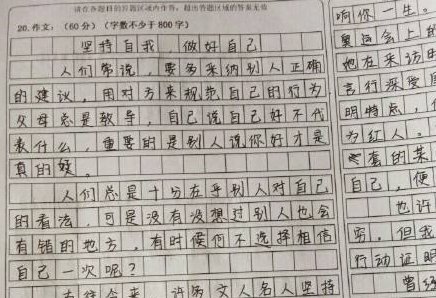 请在各题目的答题区域内作答,超出答题区域的答案无效
20.作文:(60分)(字数不少于800字)
坚持自我,做好自己
人们常说,要多采纳别人正确
的建议,用对方来规范自己的行为
父母总是教导,自己说自己好不代
表什么,重要的是别人说你好才是
真的好。
人们总是十分在乎别人对自己
的看法,可是没有没想过别人也会
有错的地方,有时候何不选择相信
自己一次呢?
古往今来,许多文人名人坚持
响你一生。
奥运会上的
她在采访时
言行深受
明特点,
为红人。
套的某
自己,便
也许
穷,但我
行动证明
曾经